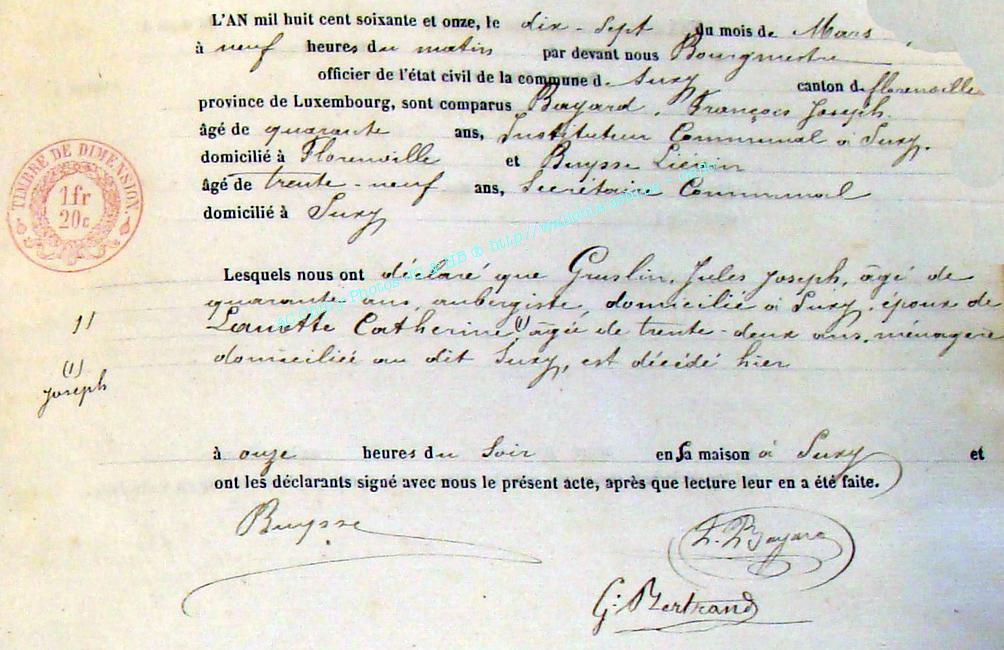 L'AN mil huit cent soixante et onze, le dix-sept du mois de Mars,
à neuf heures du matin par devant nous Bourgmestre
officier de l'état civil de la commune d. Suxy canton d. florenville
province de Luxembourg, sont comparus Bayard, François Joseph.
âgé de quarante ans, Instituteur Communal à Suxy.
domicilié à Florenville et Buysse Liévin
âgé de trente-neuf ans, Secrétaire Communal
domicilié à Suxy
TIMBRE DE DIMENSION.
1fr
20c
Lesquels nous ont déclaré que Gruslin, Jules Joseph, âgé de
quarante ans, aubergiste, domicilié à Suxy, époux de
11 Lanotte Catherine, (1) agée de trente-deux ans, ménagère
domiciliée au dit Suxy, est décédé hier
(1)
Joseph
à onze heures du Soir en sa maison à Suxy et
ont les déclarants signé avec nous le présent acte, après que lecture leur en a été faite.
Buysse
F. Bayard
G. Bertrand